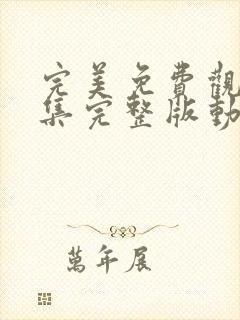 完美免費觀
集完整版動
萬年展